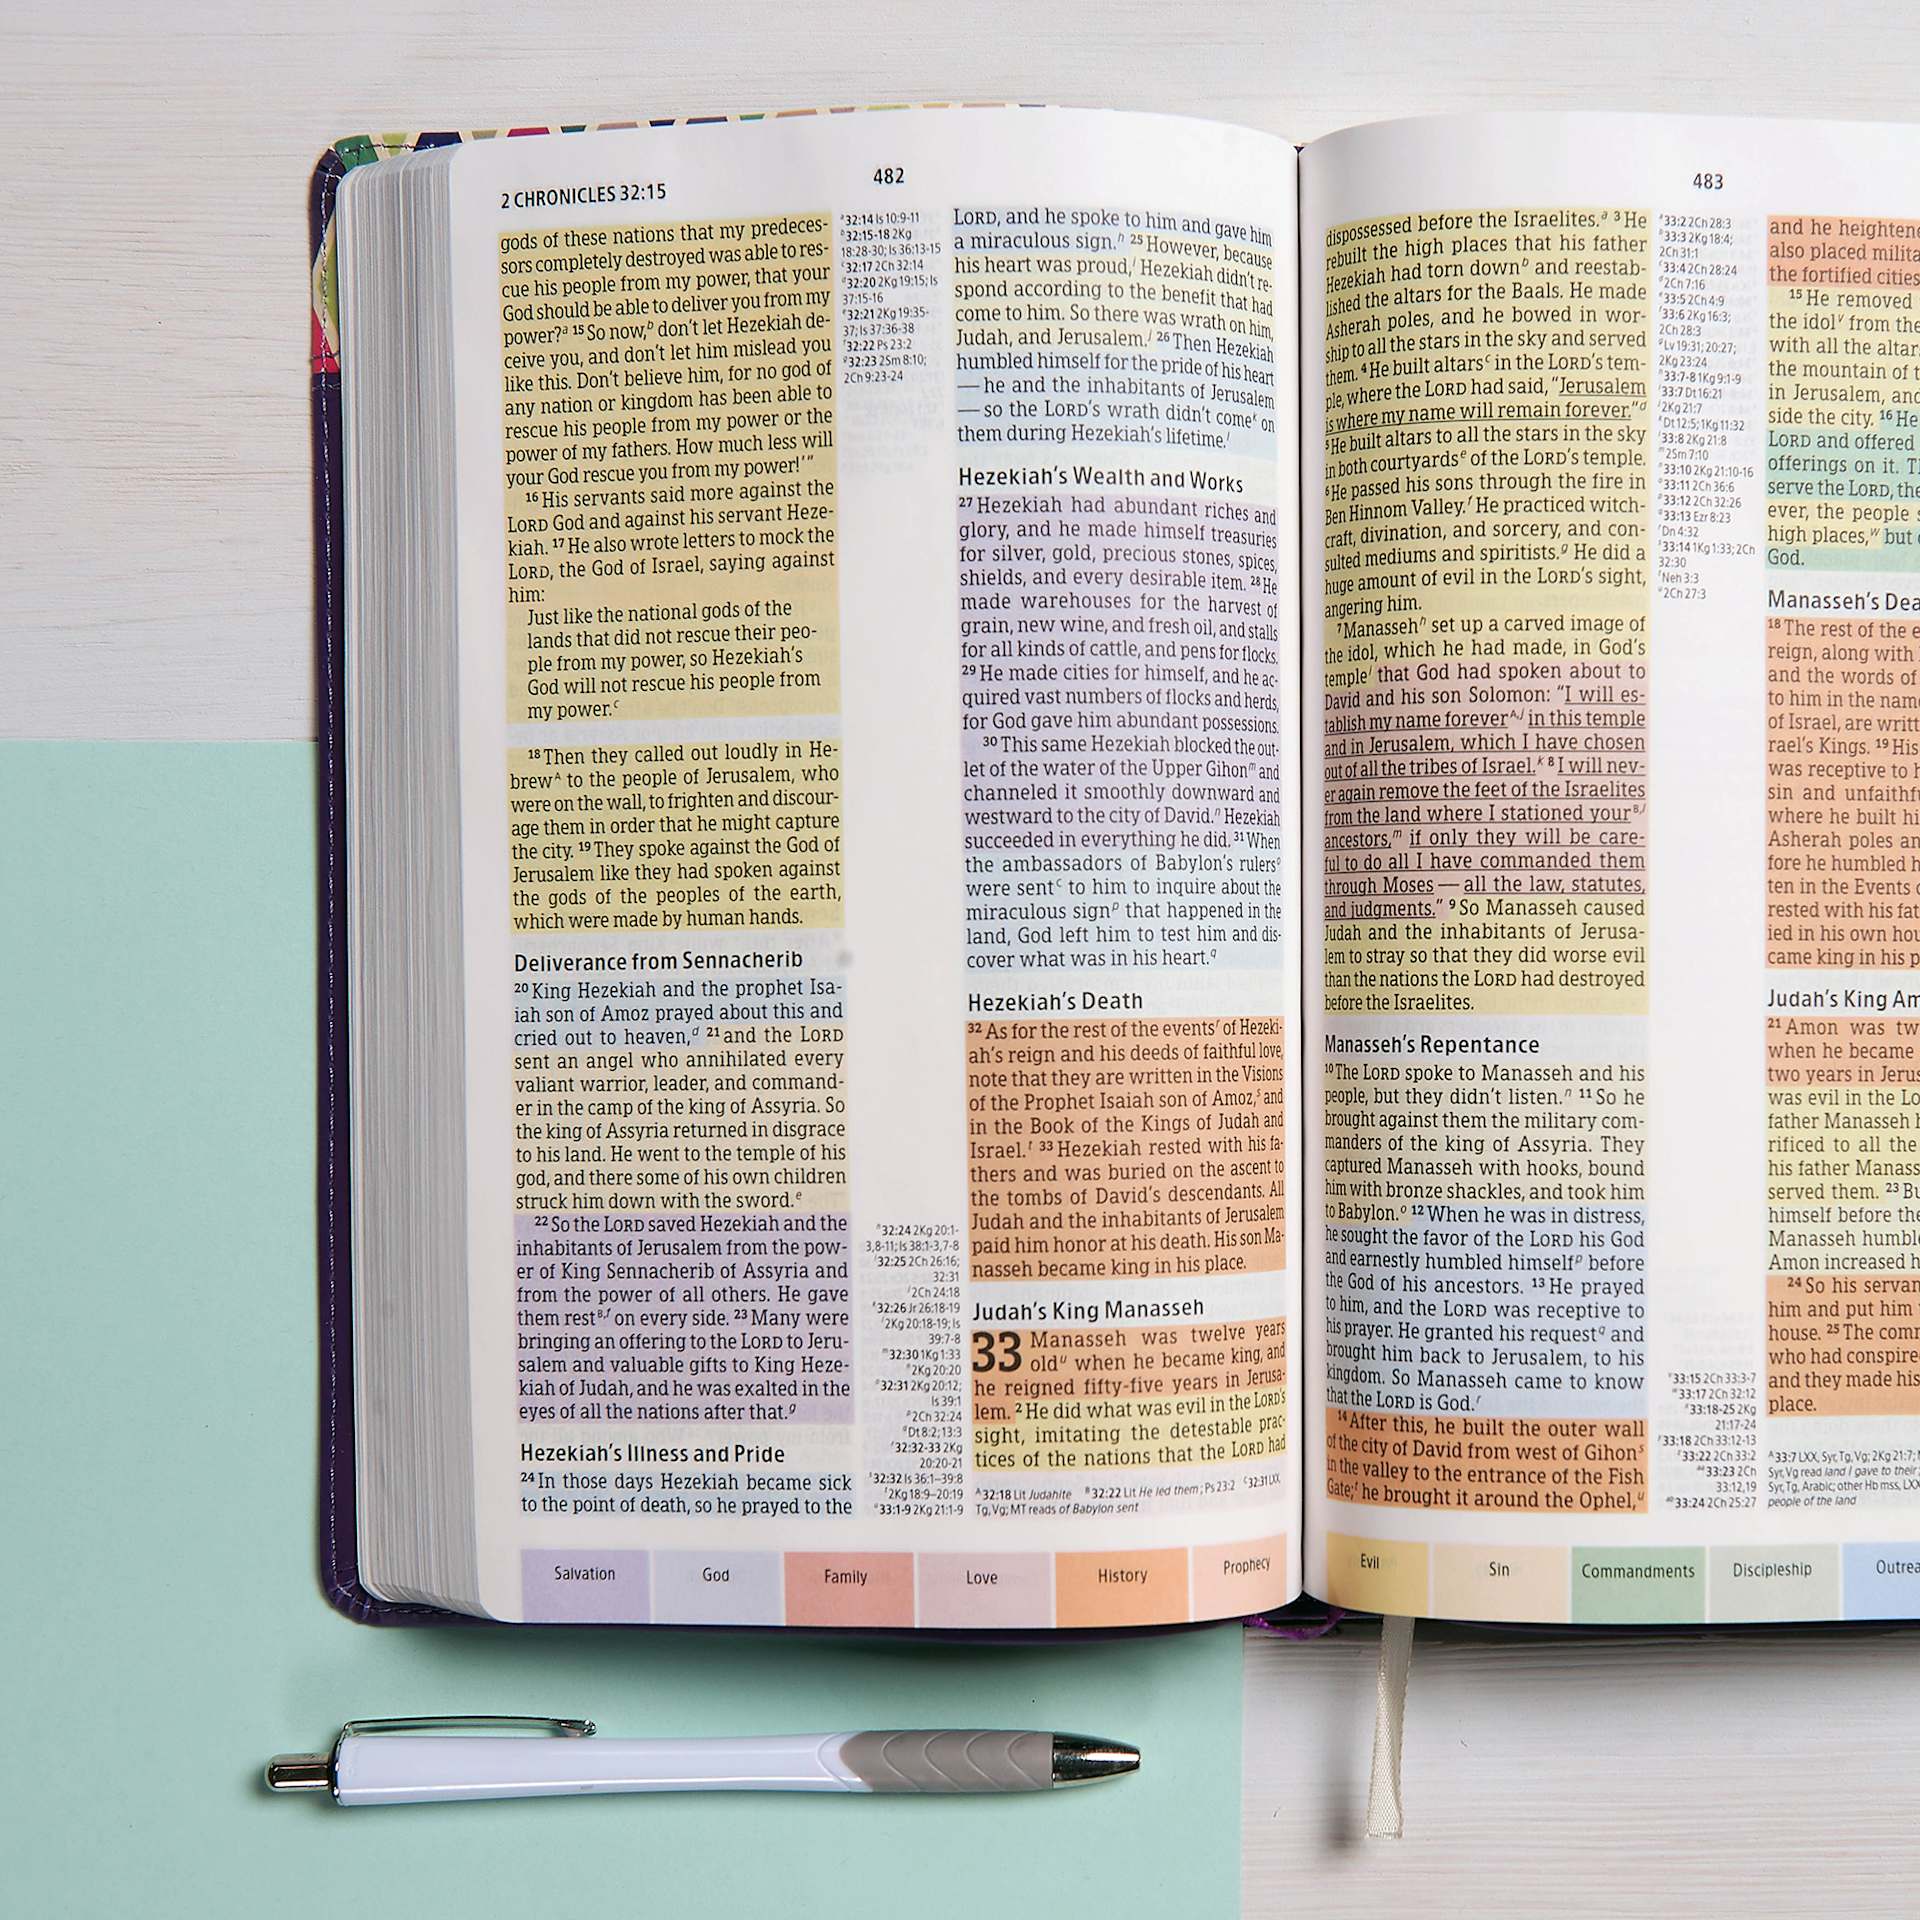 2 CHRONICLES 32:15
482
gods of these nations that my predeces-
sors completely destroyed was able to res-
cue his people from my power, that your
God should be able to deliver you from my
power?ᵃ ¹⁵ So now,ᵇ don't let Hezekiah de-
ceive you, and don't let him mislead you
like this. Don't believe him, for no god of
any nation or kingdom has been able to
rescue his people from my power or the
power of my fathers. How much less will
your God rescue you from my power!'"
¹⁶ His servants said more against the
LORD God and against his servant Heze-
kiah. ¹⁷ He also wrote letters to mock the
LORD, the God of Israel, saying against
him:
Just like the national gods of the
lands that did not rescue their peo-
ple from my power, so Hezekiah's
God will not rescue his people from
my power.ᶜ
¹⁸ Then they called out loudly in He-
brewᴬ to the people of Jerusalem, who
were on the wall, to frighten and discour-
age them in order that he might capture
the city. ¹⁹ They spoke against the God of
Jerusalem like they had spoken against
the gods of the peoples of the earth,
which were made by human hands.
Deliverance from Sennacherib
²⁰ King Hezekiah and the prophet Isa-
iah son of Amoz prayed about this and
cried out to heaven,ᵈ ²¹ and the LORD
sent an angel who annihilated every
valiant warrior, leader, and command-
er in the camp of the king of Assyria. So
the king of Assyria returned in disgrace
to his land. He went to the temple of his
god, and there some of his own children
struck him down with the sword.ᵉ
²² So the LORD saved Hezekiah and the
inhabitants of Jerusalem from the pow-
er of King Sennacherib of Assyria and
from the power of all others. He gave
them restᴮ,ᶠ on every side. ²³ Many were
bringing an offering to the LORD to Jeru-
salem and valuable gifts to King Heze-
kiah of Judah, and he was exalted in the
eyes of all the nations after that.ᵍ
Hezekiah's Illness and Pride
²⁴ In those days Hezekiah became sick
to the point of death, so he prayed to the
ᵃ32:14 Is 10:9-11
ᵇ32:15-18 2Kg
18:28-30; Is 36:13-15
ᶜ32:17 2Ch 32:14
ᵈ32:20 2Kg 19:15; Is
37:15-16
ᵉ32:21 2Kg 19:35-
37; Is 37:36-38
ᶠ32:22 Ps 23:2
ᵍ32:23 2Sm 8:10;
2Ch 9:23-24
ʰ32:24 2Kg 20:1-
3,8-11; Is 38:1-3,7-8
ⁱ32:25 2Ch 26:16;
32:31
ʲ2Ch 24:18
ᵏ32:26 Jr 26:18-19
ˡ2Kg 20:18-19; Is
39:7-8
ᵐ32:30 1Kg 1:33
ⁿ2Kg 20:20
ᵒ32:31 2Kg 20:12;
Is 39:1
ᵖ2Ch 32:24
Dt 8:2; 13:3
ʳ32:32-33 2Kg
20:20-21
ˢ32:32 Is 36:1–39:8
ᵗ2Kg 18:9–20:19
ᵘ33:1-9 2Kg 21:1-9
LORD, and he spoke to him and gave him
a miraculous sign.ʰ ²⁵ However, because
his heart was proud,ⁱ Hezekiah didn't re-
spond according to the benefit that had
come to him. So there was wrath on him,
Judah, and Jerusalem.ʲ ²⁶ Then Hezekiah
humbled himself for the pride of his heart
— he and the inhabitants of Jerusalem
— so the LORD's wrath didn't comeᵏ on
them during Hezekiah's lifetime.ˡ
Hezekiah's Wealth and Works
²⁷ Hezekiah had abundant riches and
glory, and he made himself treasuries
for silver, gold, precious stones, spices,
shields, and every desirable item. ²⁸ He
made warehouses for the harvest of
grain, new wine, and fresh oil, and stalls
for all kinds of cattle, and pens for flocks.
²⁹ He made cities for himself, and he ac-
quired vast numbers of flocks and herds,
for God gave him abundant possessions.
³⁰ This same Hezekiah blocked the out-
let of the water of the Upper Gihonᵐ and
channeled it smoothly downward and
westward to the city of David.ⁿ Hezekiah
succeeded in everything he did. ³¹ When
the ambassadors of Babylon's rulersᵒ
were sentᶜ to him to inquire about the
miraculous signᵖ that happened in the
land, God left him to test him and dis-
cover what was in his heart.q
Hezekiah's Death
³² As for the rest of the eventsʳ of Hezeki-
ah's reign and his deeds of faithful love,
note that they are written in the Visions
of the Prophet Isaiah son of Amoz,ˢ and
in the Book of the Kings of Judah and
Israel.ᵗ ³³ Hezekiah rested with his fa-
thers and was buried on the ascent to
the tombs of David's descendants. All
Judah and the inhabitants of Jerusalem
paid him honor at his death. His son Ma-
nasseh became king in his place.
Judah's King Manasseh
33 Manasseh was twelve years
oldᵘ when he became king, and
he reigned fifty-five years in Jerusa-
lem. ² He did what was evil in the LORD's
sight, imitating the detestable prac-
tices of the nations that the LORD had
ᴬ32:18 Lit Judahite ᴮ32:22 Lit He led them; Ps 23:2 ᶜ32:31 LXX,
Tg, Vg; MT reads of Babylon sent
Salvation God Family Love History Prophecy
483
dispossessed before the Israelites.ᵃ ³ He
rebuilt the high places that his father
Hezekiah had torn downᵇ and reestab-
lished the altars for the Baals. He made
Asherah poles, and he bowed in wor-
ship to all the stars in the sky and served
them. ⁴ He built altarsᶜ in the LORD's tem-
ple, where the LORD had said, "Jerusalem
is where my name will remain forever."ᵈ
⁵ He built altars to all the stars in the sky
in both courtyardsᵉ of the LORD's temple.
⁶ He passed his sons through the fire in
Ben Hinnom Valley.ᶠ He practiced witch-
craft, divination, and sorcery, and con-
sulted mediums and spiritists.ᵍ He did a
huge amount of evil in the LORD's sight,
angering him.
⁷ Manassehʰ set up a carved image of
the idol, which he had made, in God's
templeⁱ that God had spoken about to
David and his son Solomon: "I will es-
tablish my name foreverᴬ,ʲ in this temple
and in Jerusalem, which I have chosen
out of all the tribes of Israel.ᵏ ⁸ I will nev-
er again remove the feet of the Israelites
from the land where I stationed yourᴮ,ˡ
ancestors,ᵐ if only they will be care-
ful to do all I have commanded them
through Moses — all the law, statutes,
and judgments." ⁹ So Manasseh caused
Judah and the inhabitants of Jerusa-
lem to stray so that they did worse evil
than the nations the LORD had destroyed
before the Israelites.
Manasseh's Repentance
¹⁰ The LORD spoke to Manasseh and his
people, but they didn't listen.ⁿ ¹¹ So he
brought against them the military com-
manders of the king of Assyria. They
captured Manasseh with hooks, bound
him with bronze shackles, and took him
to Babylon.ᵒ ¹² When he was in distress,
he sought the favor of the LORD his God
and earnestly humbled himselfᵖ before
the God of his ancestors. ¹³ He prayed
to him, and the LORD was receptive to
his prayer. He granted his requestq and
brought him back to Jerusalem, to his
kingdom. So Manasseh came to know
that the LORD is God.ʳ
¹⁴ After this, he built the outer wall
of the city of David from west of Gihonˢ
in the valley to the entrance of the Fish
Gate;ᵗ he brought it around the Ophel,ᵘ
ᵃ33:2 2Ch 28:3
ᵇ33:3 2Kg 18:4;
2Ch 31:1
ᶜ33:4 2Ch 28:24
ᵈ2Ch 7:16
ᵉ33:5 2Ch 4:9
ᶠ33:6 2Kg 16:3;
2Ch 28:3
ᵍLv 19:31; 20:27;
2Kg 23:24
ʰ33:7-8 1Kg 9:1-9
ⁱ33:7 Dt 16:21
ʲ2Kg 21:7
ᵏDt 12:5; 1Kg 11:32
ˡ33:8 2Kg 21:8
ᵐ2Sm 7:10
ⁿ33:10 2Kg 21:10-16
ᵒ33:11 2Ch 36:6
ᵖ33:12 2Ch 32:26
33:13 Ezr 8:23
ʳDn 4:32
ˢ33:14 1Kg 1:33; 2Ch
32:30
ᵗNeh 3:3
ᵘ2Ch 27:3
ᵛ33:15 2Ch 33:3-7
ʷ33:17 2Ch 32:12
33:18-25 2Kg
21:17-24
33:18 2Ch 33:12-13
33:22 2Ch 33:2
33:23 2Ch
33:12,19
33:24 2Ch 25:27
and he heightene
also placed milita
the fortified cities
¹⁵ He removed
the idolᵛ from the
with all the altar
the mountain of t
in Jerusalem, and
side the city. ¹⁶ He
LORD and offered
offerings on it. T
serve the LORD, the
ever, the people s
high places,ʷ but
God.
Manasseh's Dea
¹⁸ The rest of the e
reign, along with
and the words of
to him in the nam
of Israel, are writt
rael's Kings. ¹⁹ His
was receptive to h
sin and unfaithfu
where he built hi
Asherah poles an
fore he humbled h
ten in the Events o
rested with his fat
ied in his own hou
came king in his p
Judah's King Am
²¹ Amon was tw
when he became
two years in Jerus
was evil in the Lo
father Manasseh h
rificed to all the
his father Manass
served them. ²³ Bu
himself before the
Manasseh humble
Amon increased h
²⁴ So his servan
him and put him
house. ²⁵ The comm
who had conspire
and they made his
place.
ᴬ33:7 LXX, Syr, Tg, Vg; 2Kg 21:7;
Syr, Vg read land I gave to their
Syr, Tg, Arabic; other Hb mss, LXX
people of the land
Evil Sin Commandments Discipleship Outrea